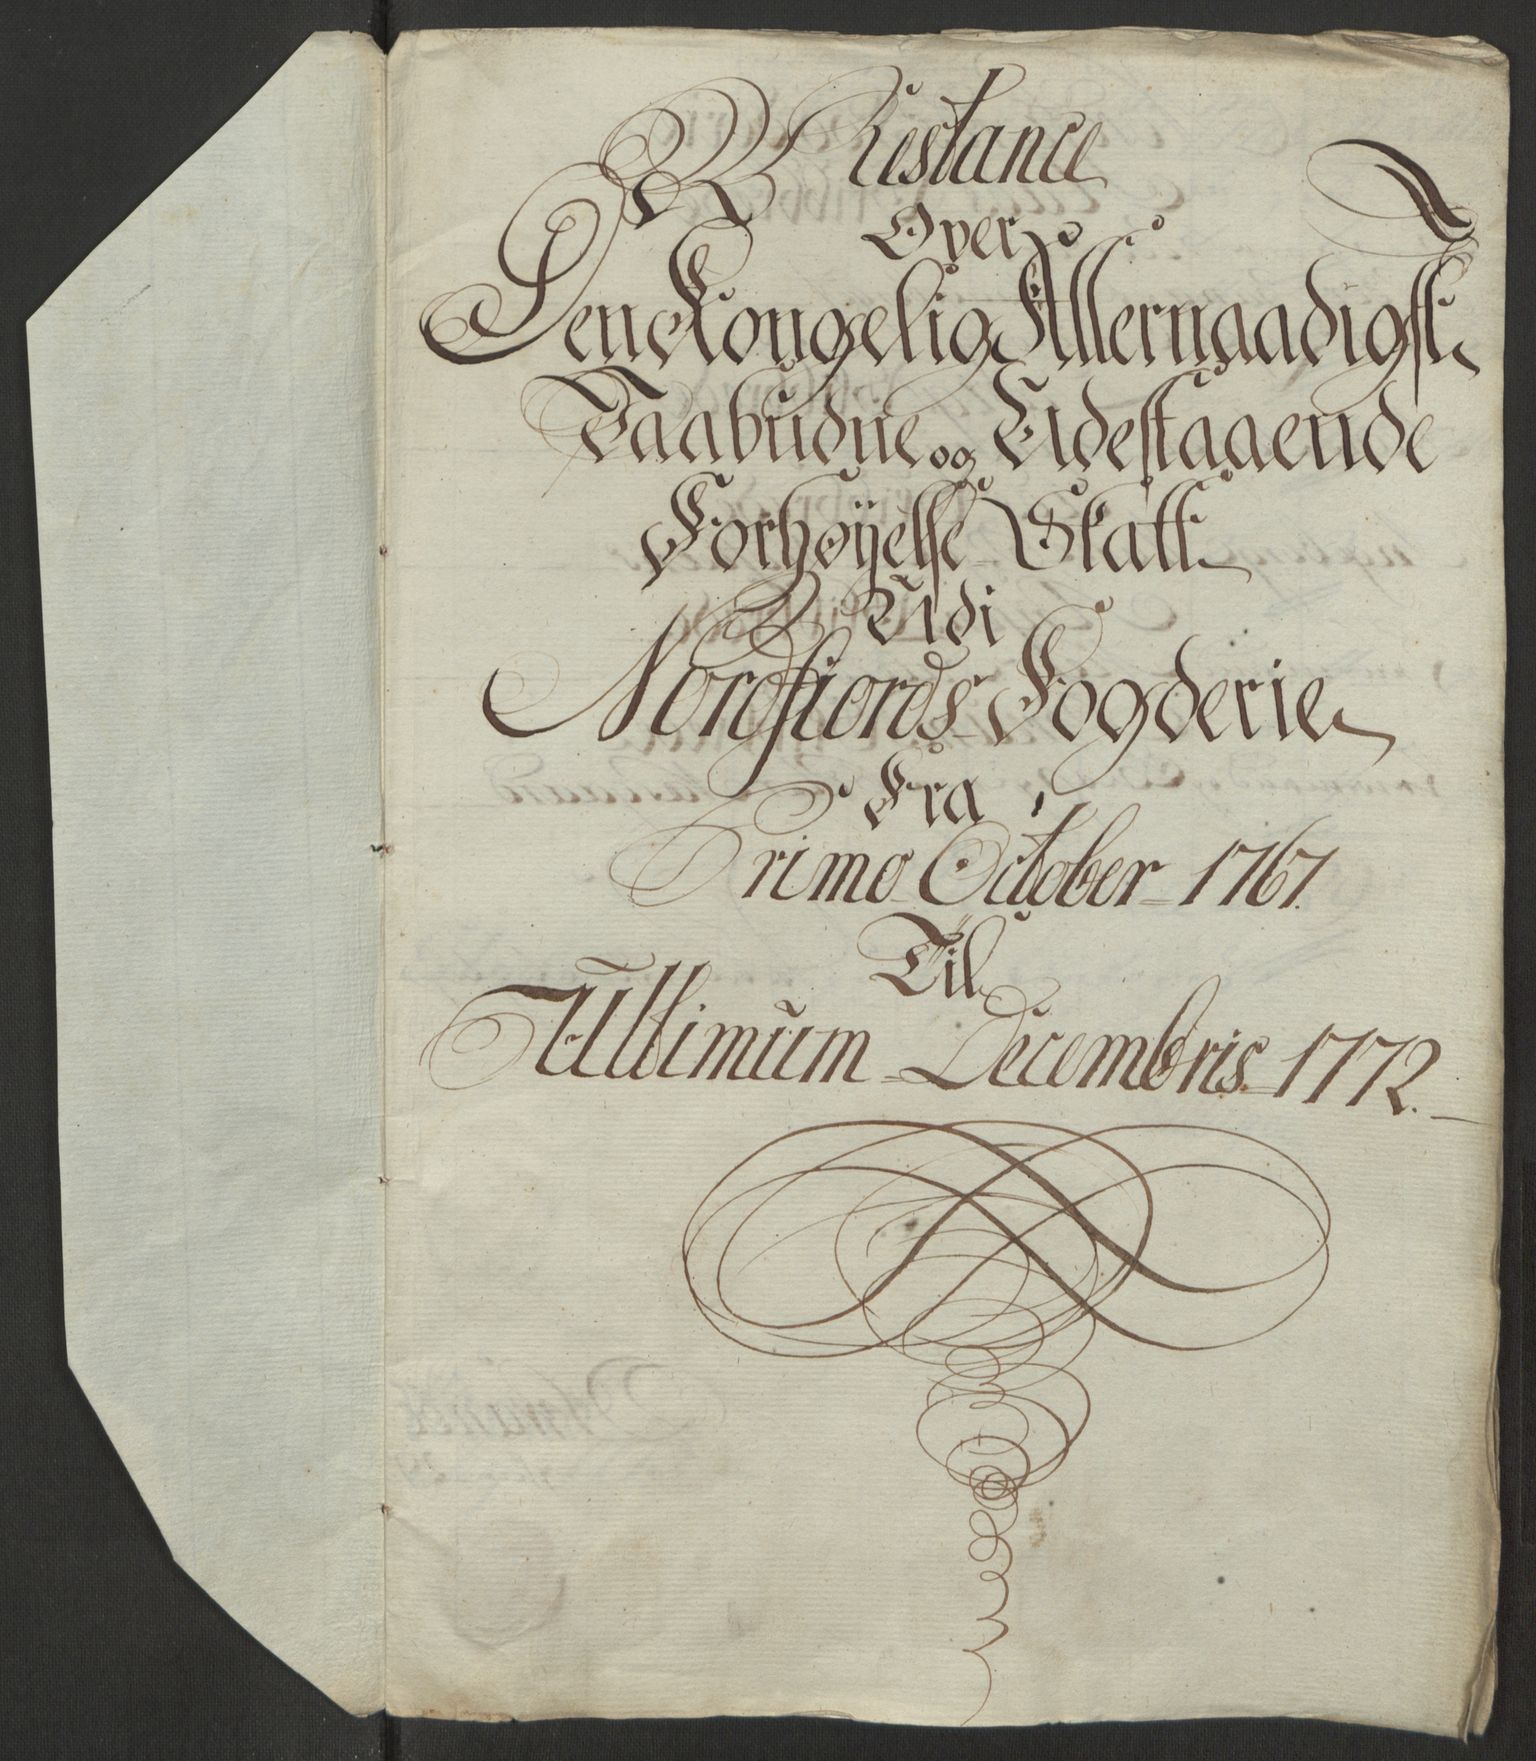 Restance
Over
Den Kongelig Allernaadigst
Paabudne og Udestaaende
Forhøyelse Skatt
Udi
Nordfiords Fogderie
Fra
Primo October 1767.
Til
Ultimum Decembris 1772.